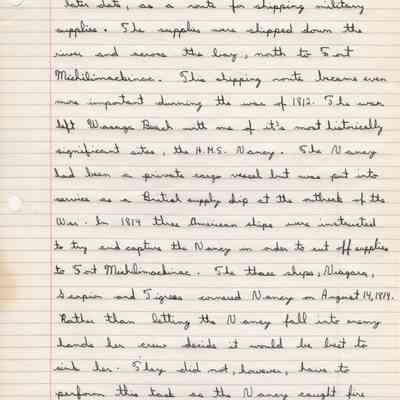 later date, as a route for shipping military
supplies. The supplies were shipped down the
river and across the bay, north to Fort
Michilimackinac. This shipping route became even
more important dunning the war of 1812. The war
left Wasaga Beach with one of it's most historically
significant sites, the H.M.S. Nancy. The Nancy
had been a private cargo vessel but was put into
service as a British supply ship at the outbreak of the
War. In 1814 three American ships were instructed
to try and capture the Nancy in order to cut off supplies
to Fort Michilimackinac. The three ships, Niagara,
Scorpion and Tigress cornered Nancy on August 14, 1814.
Rather than letting the Nancy fall into enemy
hands her crew decide it would be best to
sink her. They did not, however, have to
perform this task as the Nancy caught fire